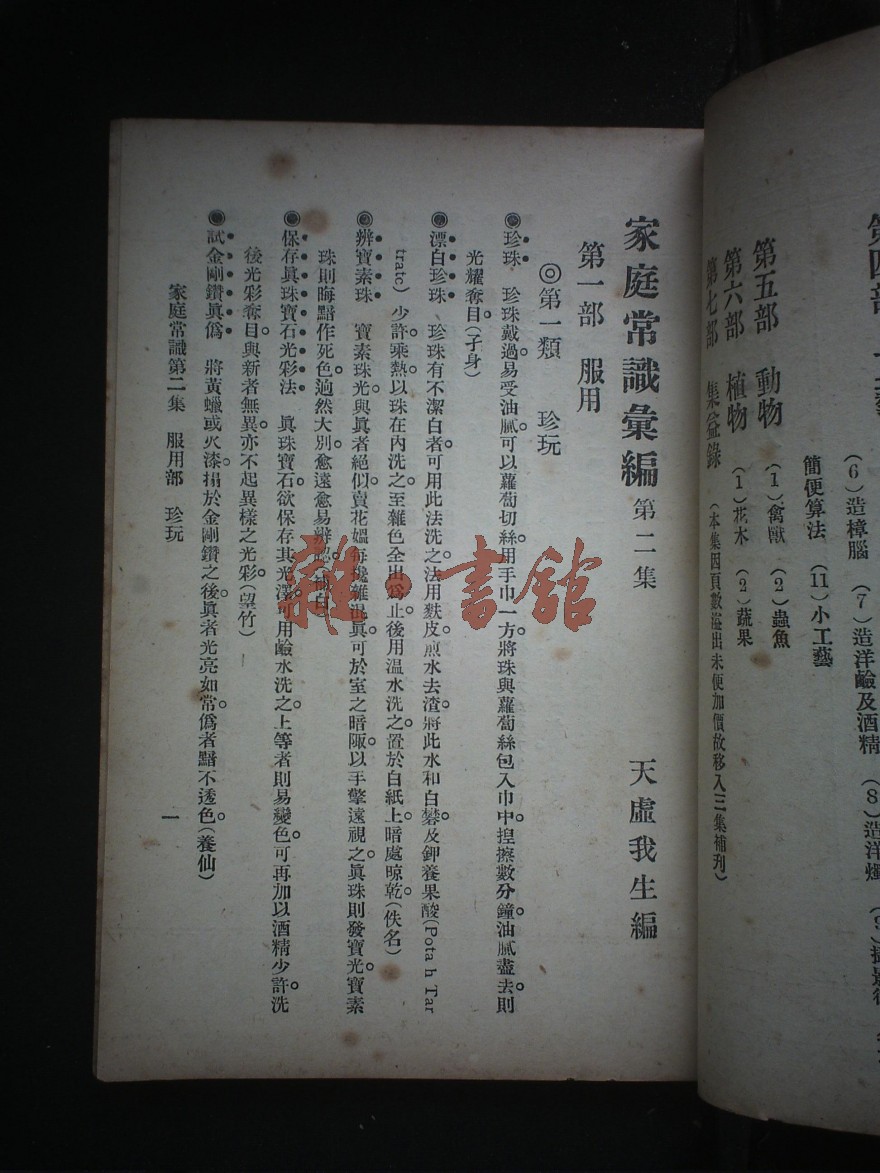 (6)造樟腦 (7)造洋鹼及酒精
簡便算法 (11)小工藝
第五部 動物 (1)禽獸 (2)蟲魚
第六部 植物 (1)花木 (2)蔬果
第七部 集益錄 (本集因頁數溢出未便加價故移入三集補刋)
家庭常識彙編 第二集 天虛我生編
第一部 服用
◎第一類 珍玩
◉珍珠 珍珠戴過易受油膩。可以蘿蔔切絲。用手巾一方。將珠與蘿蔔絲包入巾中。揑擦數分鐘。油膩盡去。則
光耀奪目。(子身)
◉漂白珍珠 珍珠有不潔白者。可用此法洗之。法用麩皮煎水去渣。將此水和白礬及鉀養果酸(Pota h Tar
trate)少許。乘熱以珠在內洗之。至雜色全出爲止。後用温水洗之。置於白紙上。暗處晾乾。(佚名)
◉辨寶素珠 寶素珠光與眞者絕似。賣花媼每攙雜混眞。可於室之暗陬。以手擎遠視之。眞珠則發寶光。寶素
珠則晦黯作死色。逈然大別。愈遠愈易辨
◉保存眞珠寶石光彩法 眞珠寶石欲保存其光澤。可用鹼水洗之。上等者則易變色。可再加以酒精少許。洗
後光彩奪目。與新者無異。亦不起異樣之光彩。(望竹)
◉試金剛鑽眞僞 將黃蠟或火漆揑於金剛鑽之後。眞者光亮如常。僞者黯不透色。(養仙)
家庭常識第二集 服用部 珍玩 一
雜·書舘